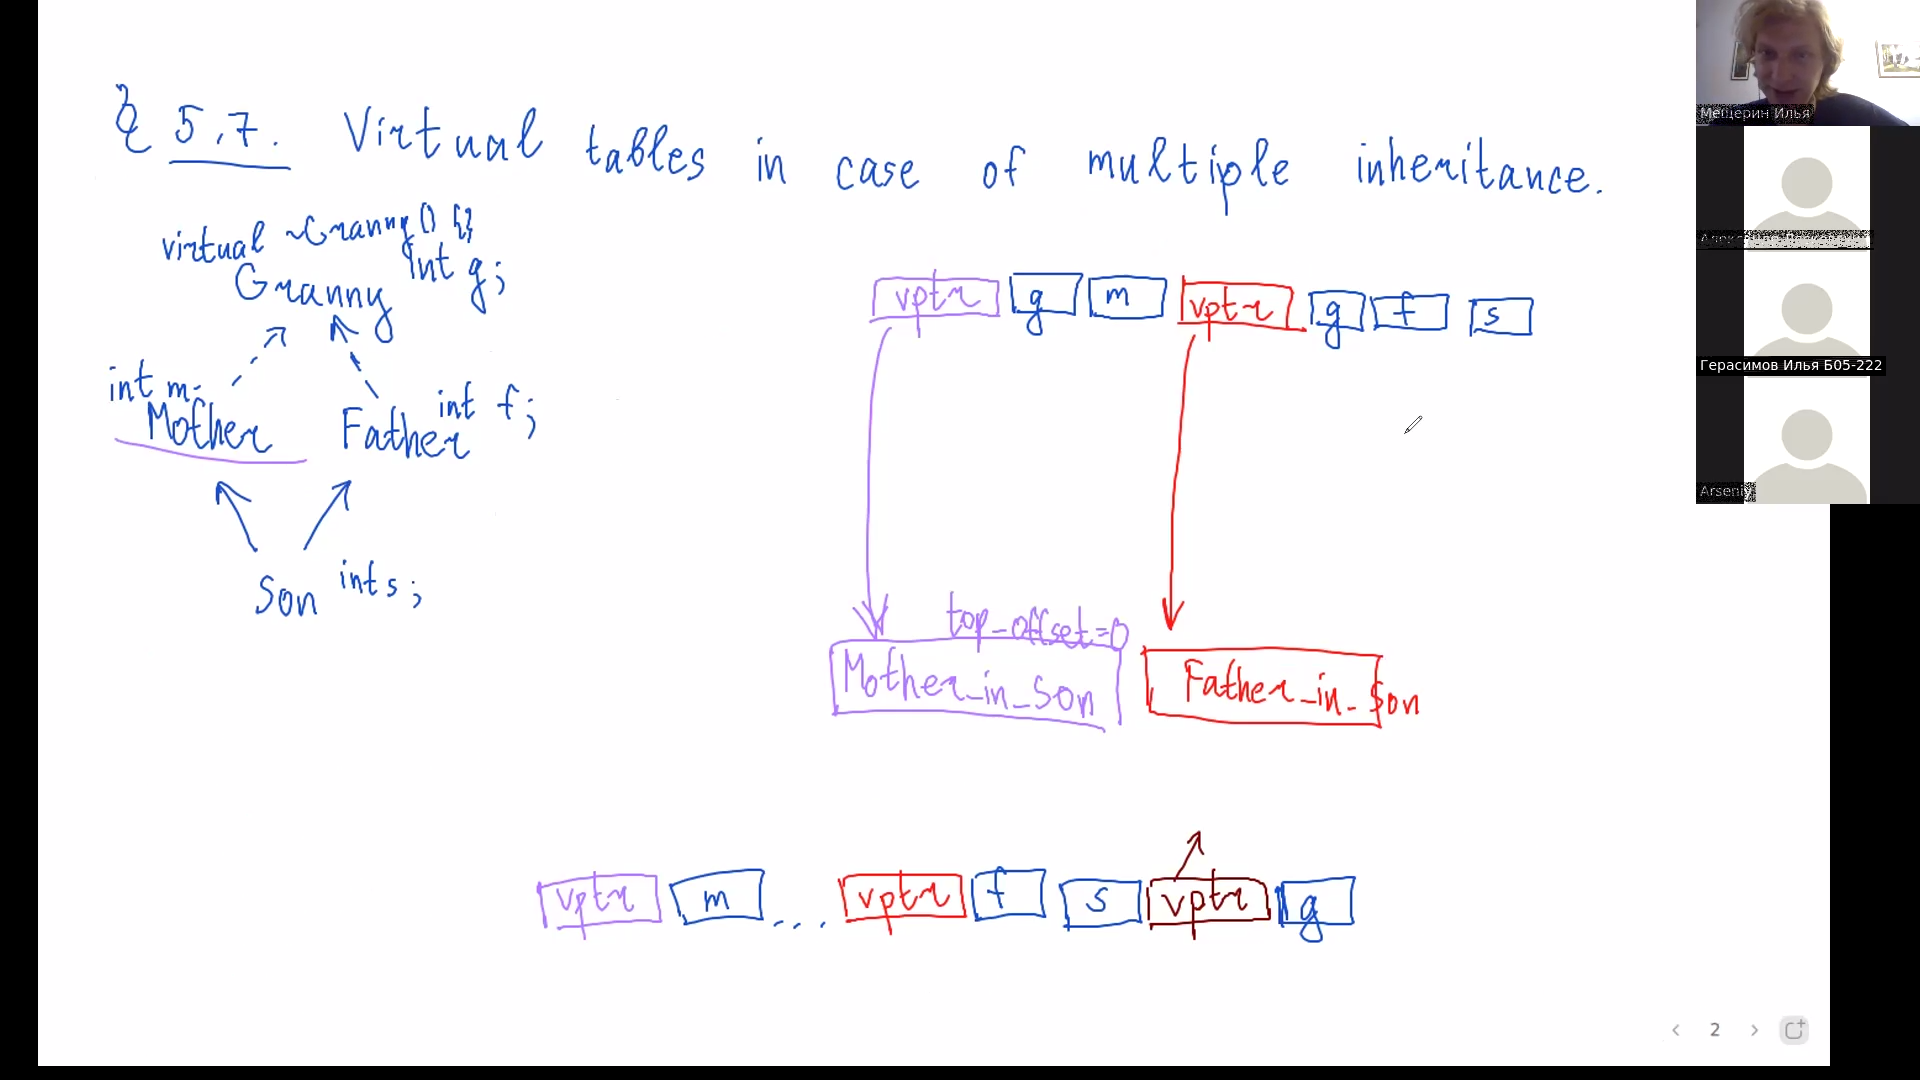 § 5.7. Virtual tables in case of multiple inheritance.
virtual ~Granny() {}
int g;
Granny
int m;
Mother
Father
int f;
Son
int s;
vptr g m vptr g f s
top_offset=0
Mother_in_Son
Father_in_Son
vptr m ... vptr f s vptr g
Мещерин Илья
Герасимов Илья Б05-222
Arseniy
2